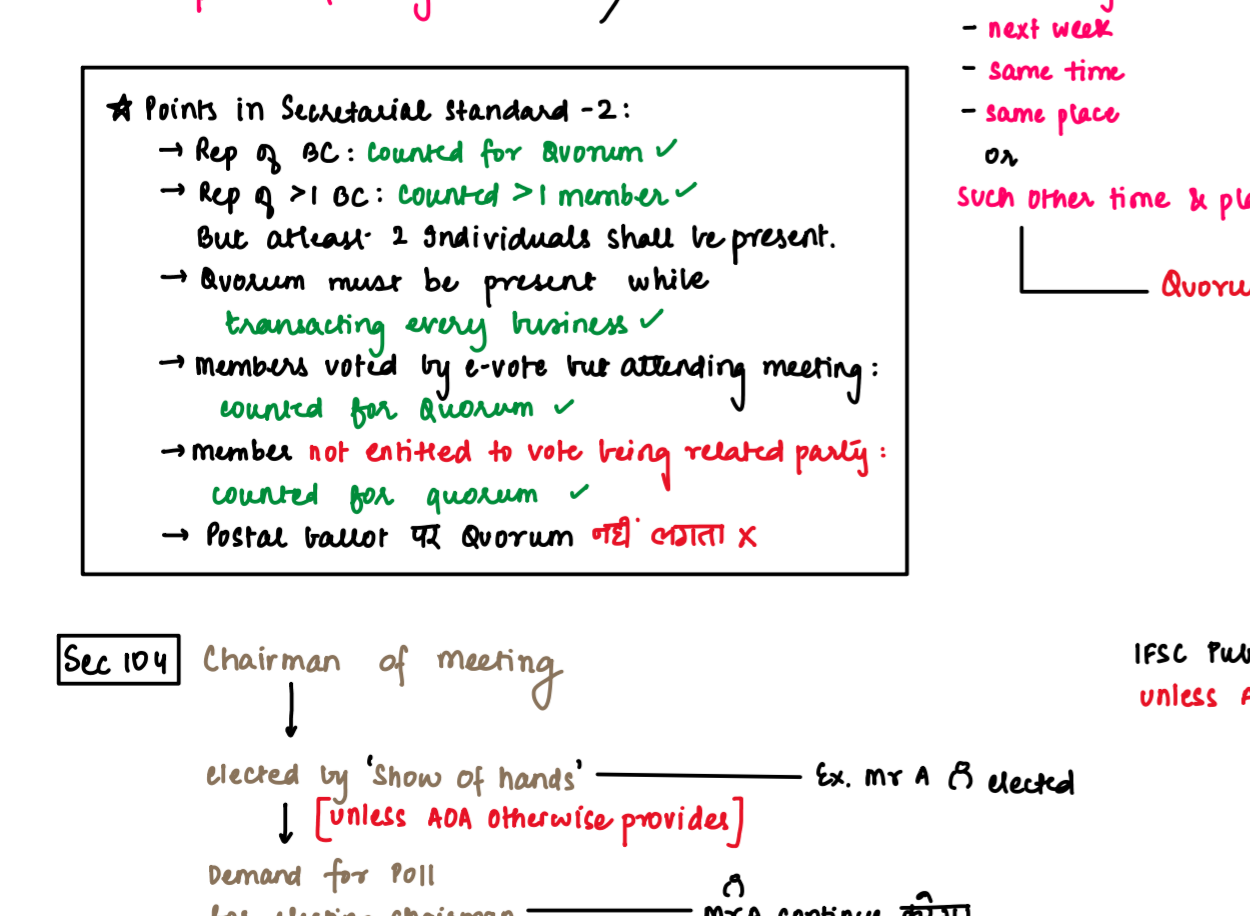 - next week
- same time
- same place
or
such other time &
Quoru
★ Points in Secretarial Standard -2:
→ Rep of BC: counted for Quorum ✓
→ Rep of >1 BC: counted >1 member ✓
But atleast 2 Individuals shall be present.
→ Quorum must be present while
transacting every business ✓
→ members voted by e-vote but attending meeting:
counted for Quorum ✓
→ member not entitled to vote being related party:
counted for quorum ✓
→ Postal ballot पर Quorum नहीं लगता x
Sec 104 Chairman of meeting
IFSC Pub
unless A
elected by 'Show of hands' Ex. Mr A elected
[unless AOA otherwise provides]
Demand for Poll
for electing chairman Mr A continue करेगा